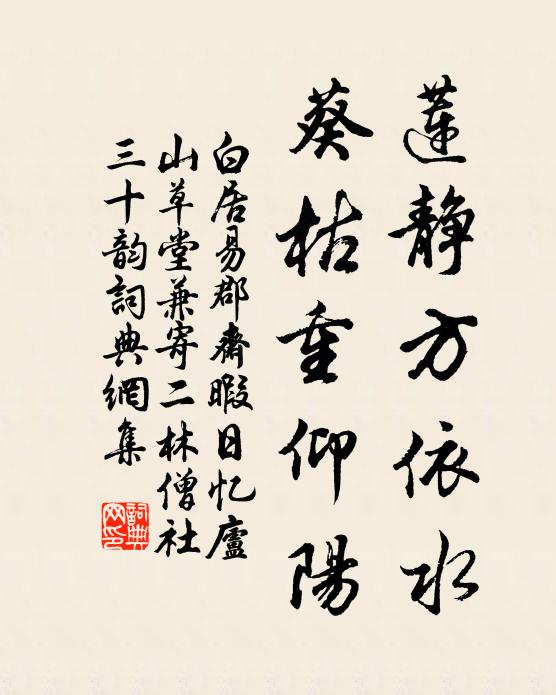 蓮静方依水
葵枯重仰陽
白居易郡齋暇日忆廬
山草堂兼寄二林僧社
三十韵詞典網集
詞典
网印